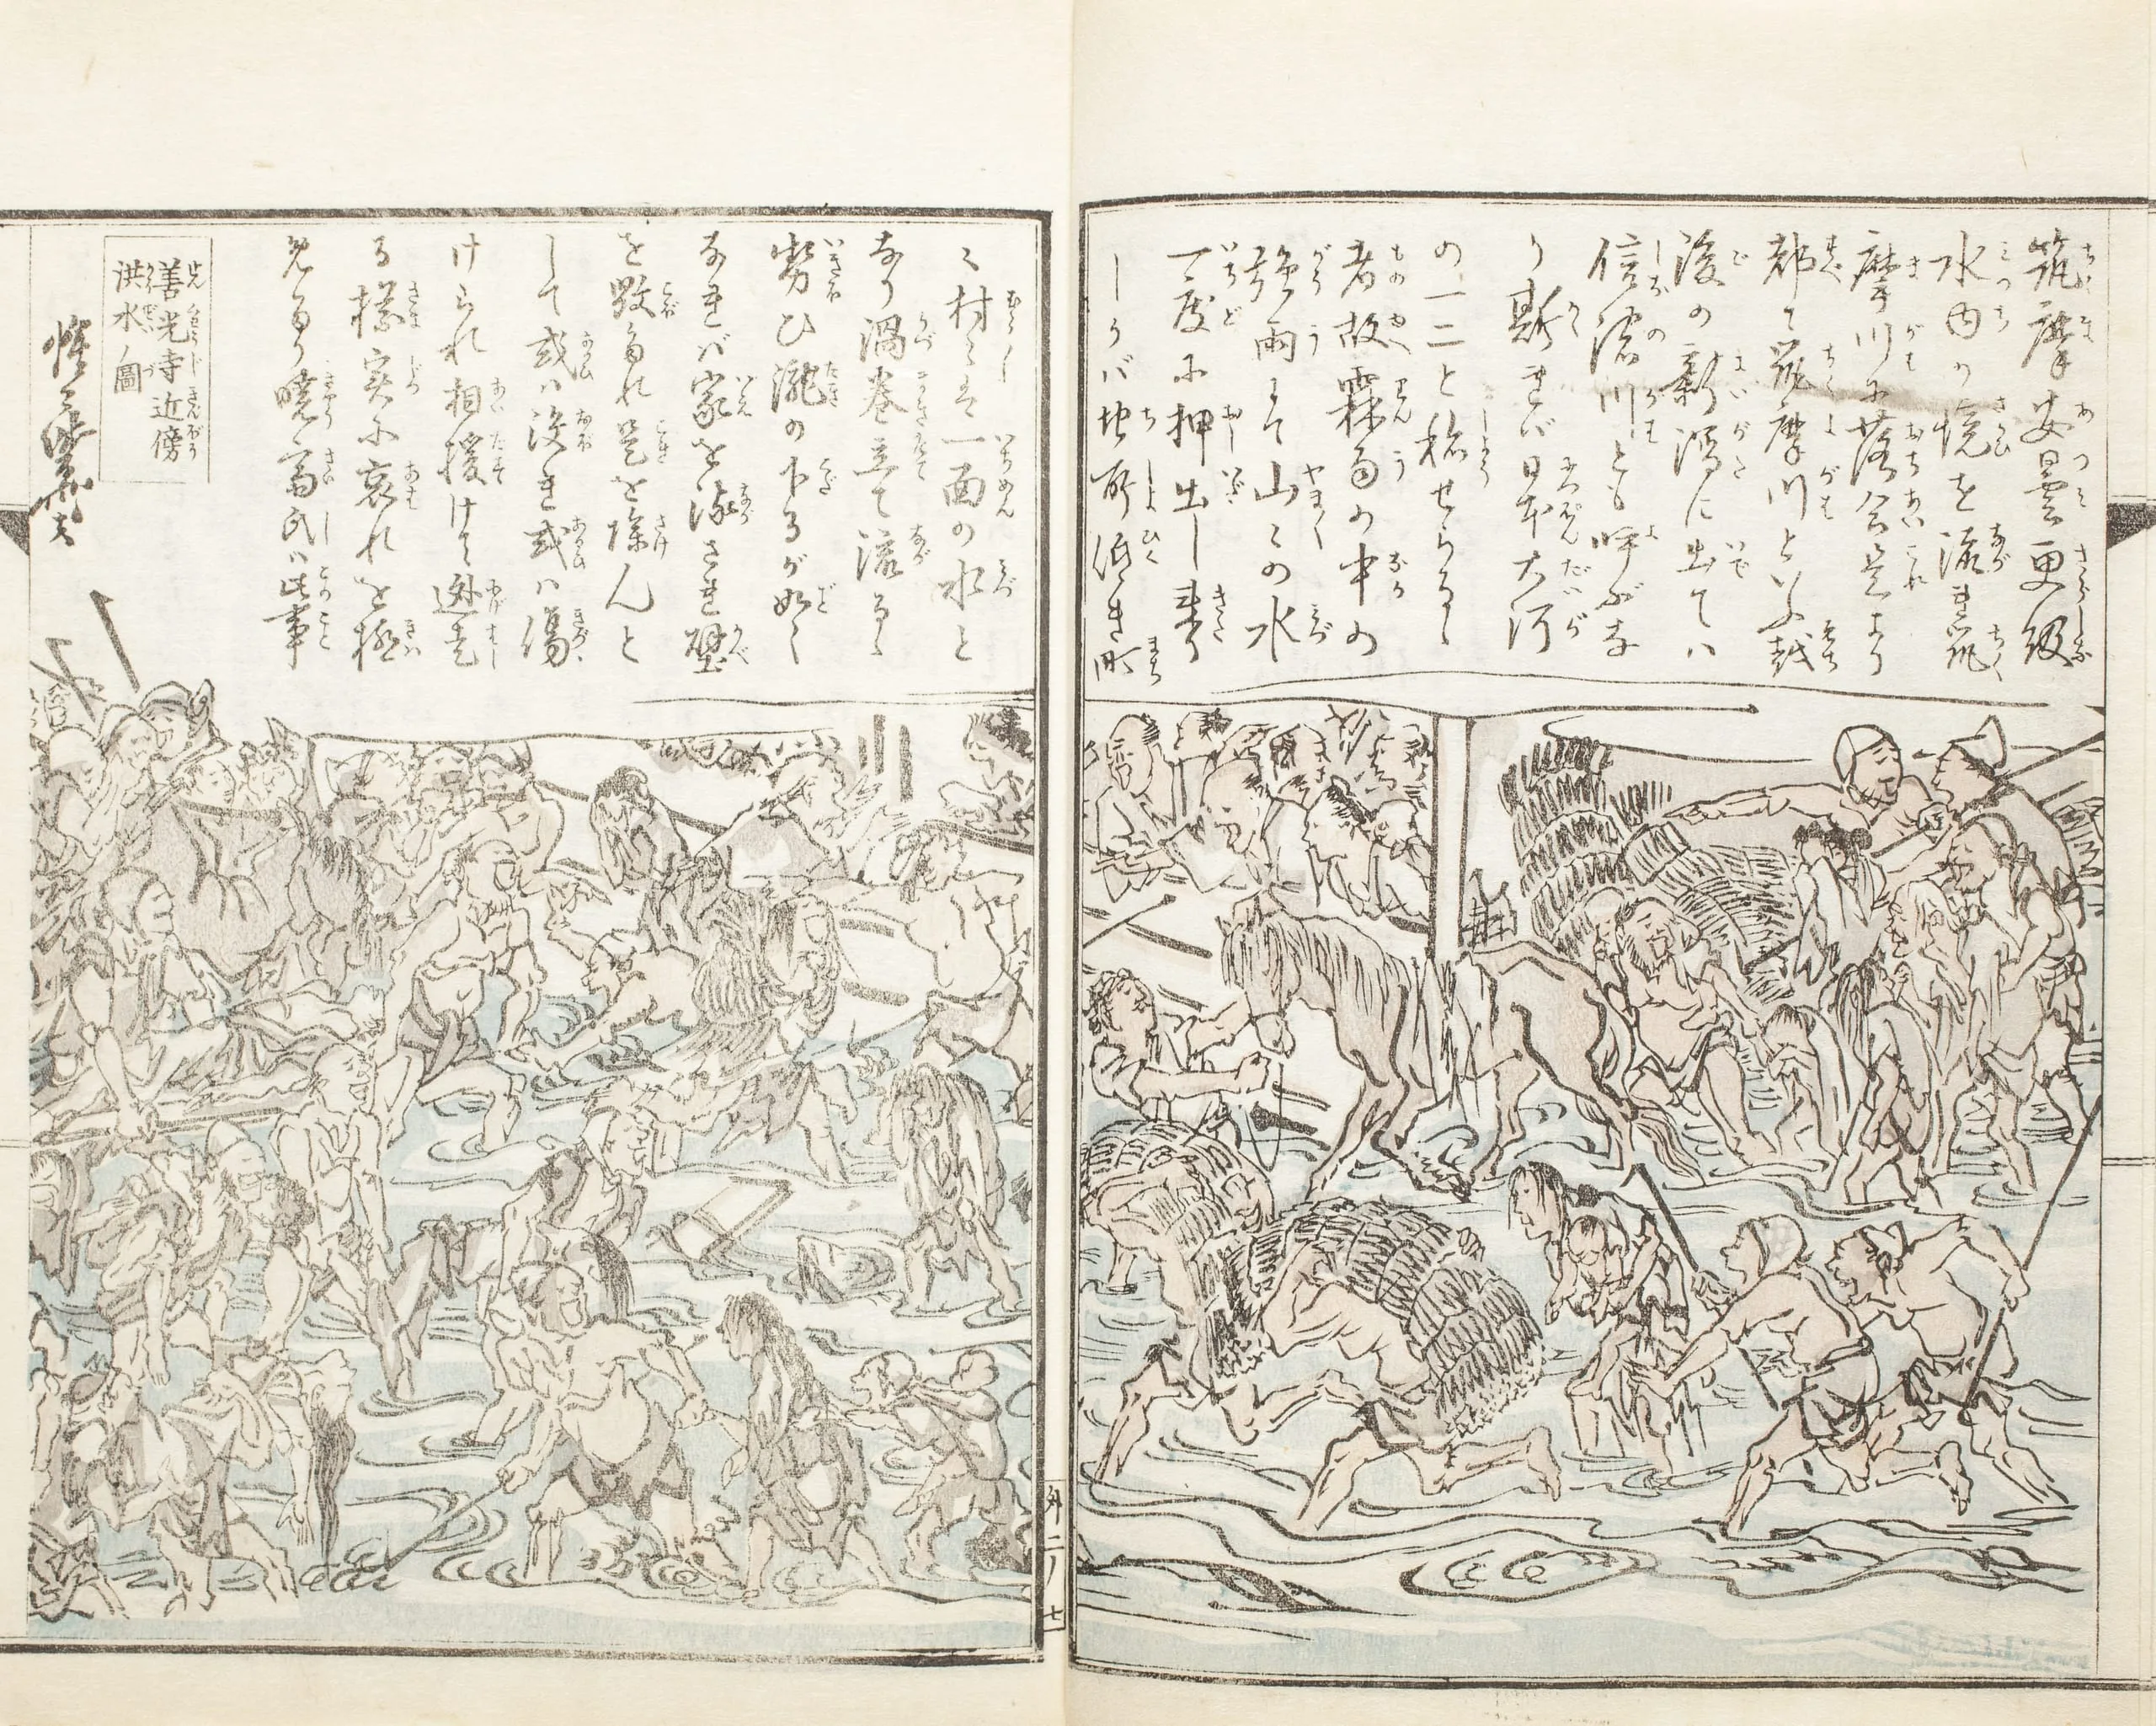 筑摩安曇更級
水内の境を流れ筑
摩川に落合是より
都て筑摩川といふ越
後の新潟に出ては
信濃川とも呼ぶな
り斯れば日本大河
の一二と称せらるゝ
者故霖雨の中の
強雨にて山々の水
一度に押出し来り
しかば地所低き町
々村々は一面の水と
なり渦巻立て流るゝ
勢ひ瀧の下るが如く
なれば家を流され壁
を毀られ是を除んと
して或は没れ或は傷
けられ相援けて逃走
る様実に哀れを極
めたり暁斎氏は此事
善光寺近傍
洪水ノ圖
惺々暁斎
外二ノ七